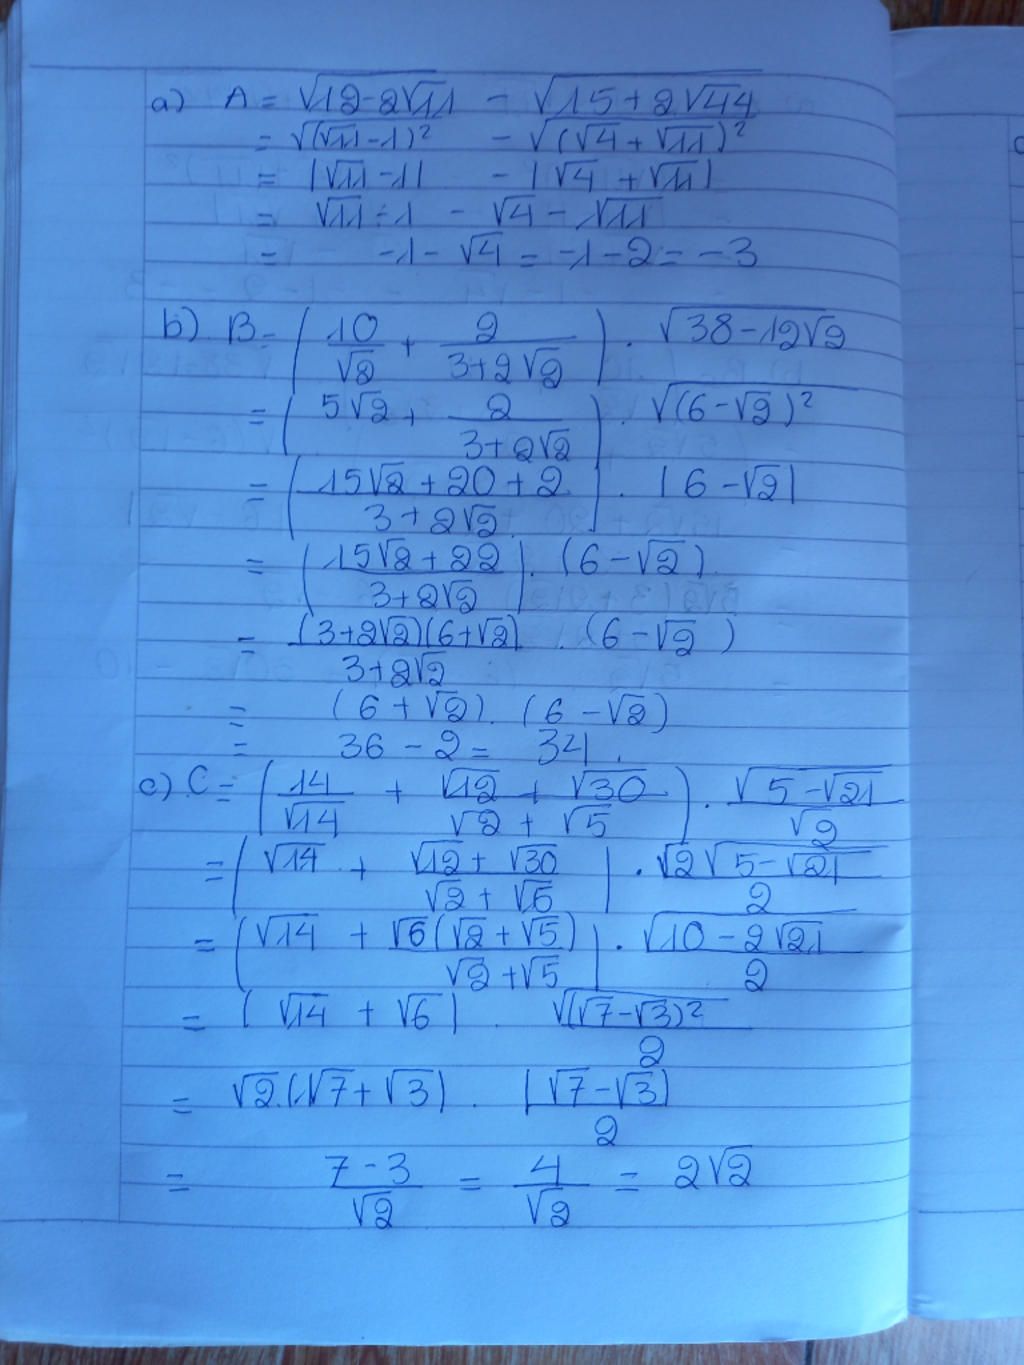 a) A = √12-2√11 - √15+2√44
= √(√11-1)² - √(√4+√11)²
= |√11-1| - |√4+√11|
= √11-1 - √4-√11
= -1-√4 = -1-2 = -3
b) B = (10/√2 + 2/3+2√2) . √38-12√2
= (5√2 + 2/3+2√2) . √(6-√2)²
= (15√2+20+2/3+2√2) . |6-√2|
= (15√2+22/3+2√2) . (6-√2)
= (3+2√2)(6+√2)/3+2√2 . (6-√2)
= (6+√2) . (6-√2)
= 36-2 = 34.
c) C = (14/√14 + √12+√30/√2+√5) . √5-√21/√2
= (√14 + √12+√30/√2+√5) . √2√5-√21/2
= (√14 + √6(√2+√5)/√2+√5) . √10-2√21/2
= (√14+√6) . √(√7-√3)²/2
= √2.(√7+√3) . |√7-√3|/2
= 7-3/√2 = 4/√2 = 2√2